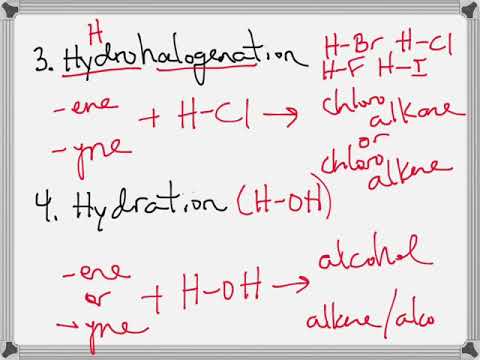 H
3. Hydrohalogenation H-Br H-Cl
H-F H-I
-ene
-yne + H-Cl → chloro alkane
or
chloro alkene
4. Hydration (H-OH)
-ene
or
-yne + H-OH → alcohol
alkene/alco